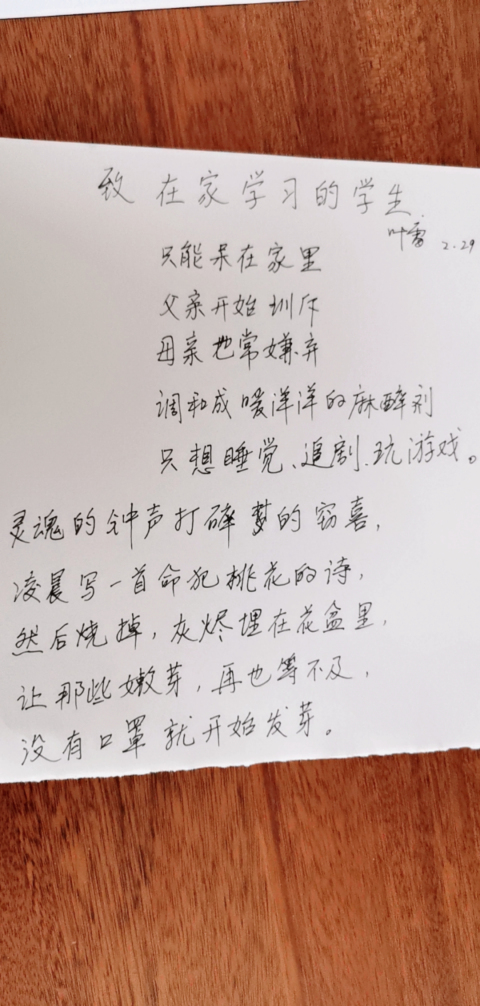 致在家学习的学生
叶雷 2.29
只能呆在家里
父亲开始训斥
母亲也常嫌弃
调和成暖洋洋的麻醉剂
只想睡觉、追剧、玩游戏。
灵魂的钟声打碎梦的窃喜，
凌晨写一首命犯桃花的诗，
然后烧掉，灰烬埋在花盆里，
让那些嫩芽，再也等不及，
没有口罩就开始发芽。